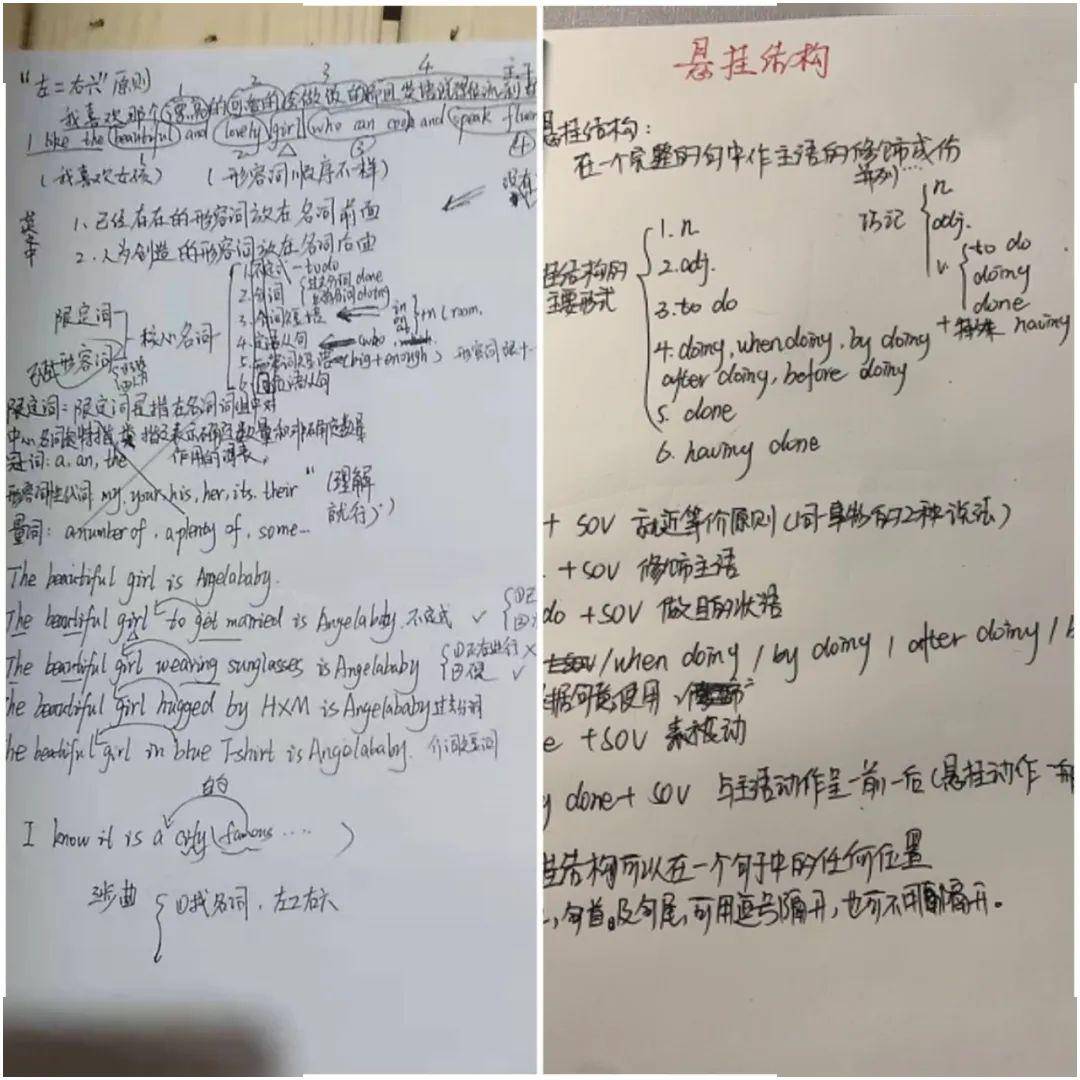 "左二右六"原则
1 2 3 4
我喜欢那个漂亮的可爱的会做饭的而且英语说得
I like the beautiful and lovely girl who can cook and speak
(我喜欢女孩) (形容词顺序不一样)
没有
英文中
1. 已经存在的形容词放在名词前面
2. 人为创造的形容词放在名词后面
限定词
形容词
核心名词
1. 不定式 - to do
2. 分词 过去分词 done 现在分词 doing
3. 介词短语 in on + n (room.
4. 定语从句 (who
5. 形容词短语 (big + enough) 形容词
6. 同位语从句
限定词: 限定词是指在名词词组中对
中心名词起特指类指及表示确定数量和非确定数量
作用的词类。
冠词: a, an, the
形容词性代词 my, your, his, her, its, their "(理解就行)"
量词: a number of , a plenty of , some...
The beautiful girl is Angelababy.
The beautiful girl to get married is Angelababy. 不定式 ✓
The beautiful girl wearing sunglasses is Angelababy ①正在进行 × ② ✓
he beautiful girl hugged by HXM is Angelababy 过去分词
he beautiful girl in blue T-shirt is Angelababy. 介词短语
的
I know it is a city (famous ····· )
三步曲 ①找名词,左二右六
悬挂结构
悬挂结构:
在一个完整的句中作主语的修饰成份
并列…
挂结构的主要形式
1. n.
2. adj.
3. to do
4. doing, when doing, by doing
after doing, before doing
5. done
6. having done
巧记
n
adj.
v. to do
doing
done
+ having
+ SOV 就近等价原则(同一事物的2种说法)
. +SOV 修饰主语
do +SOV 做目的状语
/when doing / by doing / after doing / b
据句意使用
e +SOV 表被动
g done + SOV 与主语动作呈一前一后(悬挂动作
挂结构可以在一个句子中的任何位置
,句首。及句尾,可用逗号隔开,也可不用隔开。